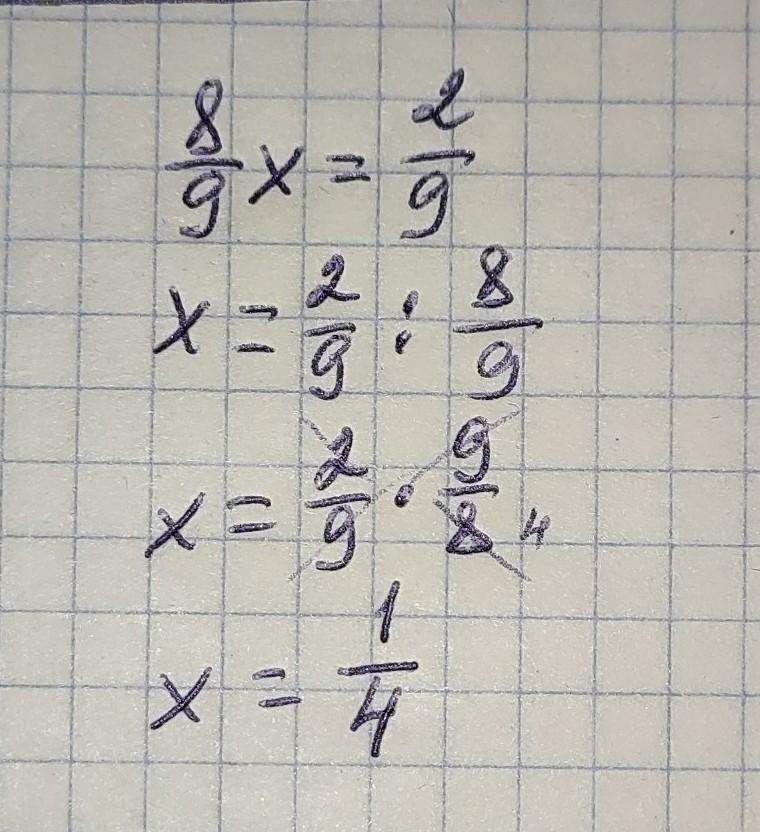 8/9 x = 2/9
x = 2/9 : 8/9
x = 2/9 · 9/8 4
x = 1/4